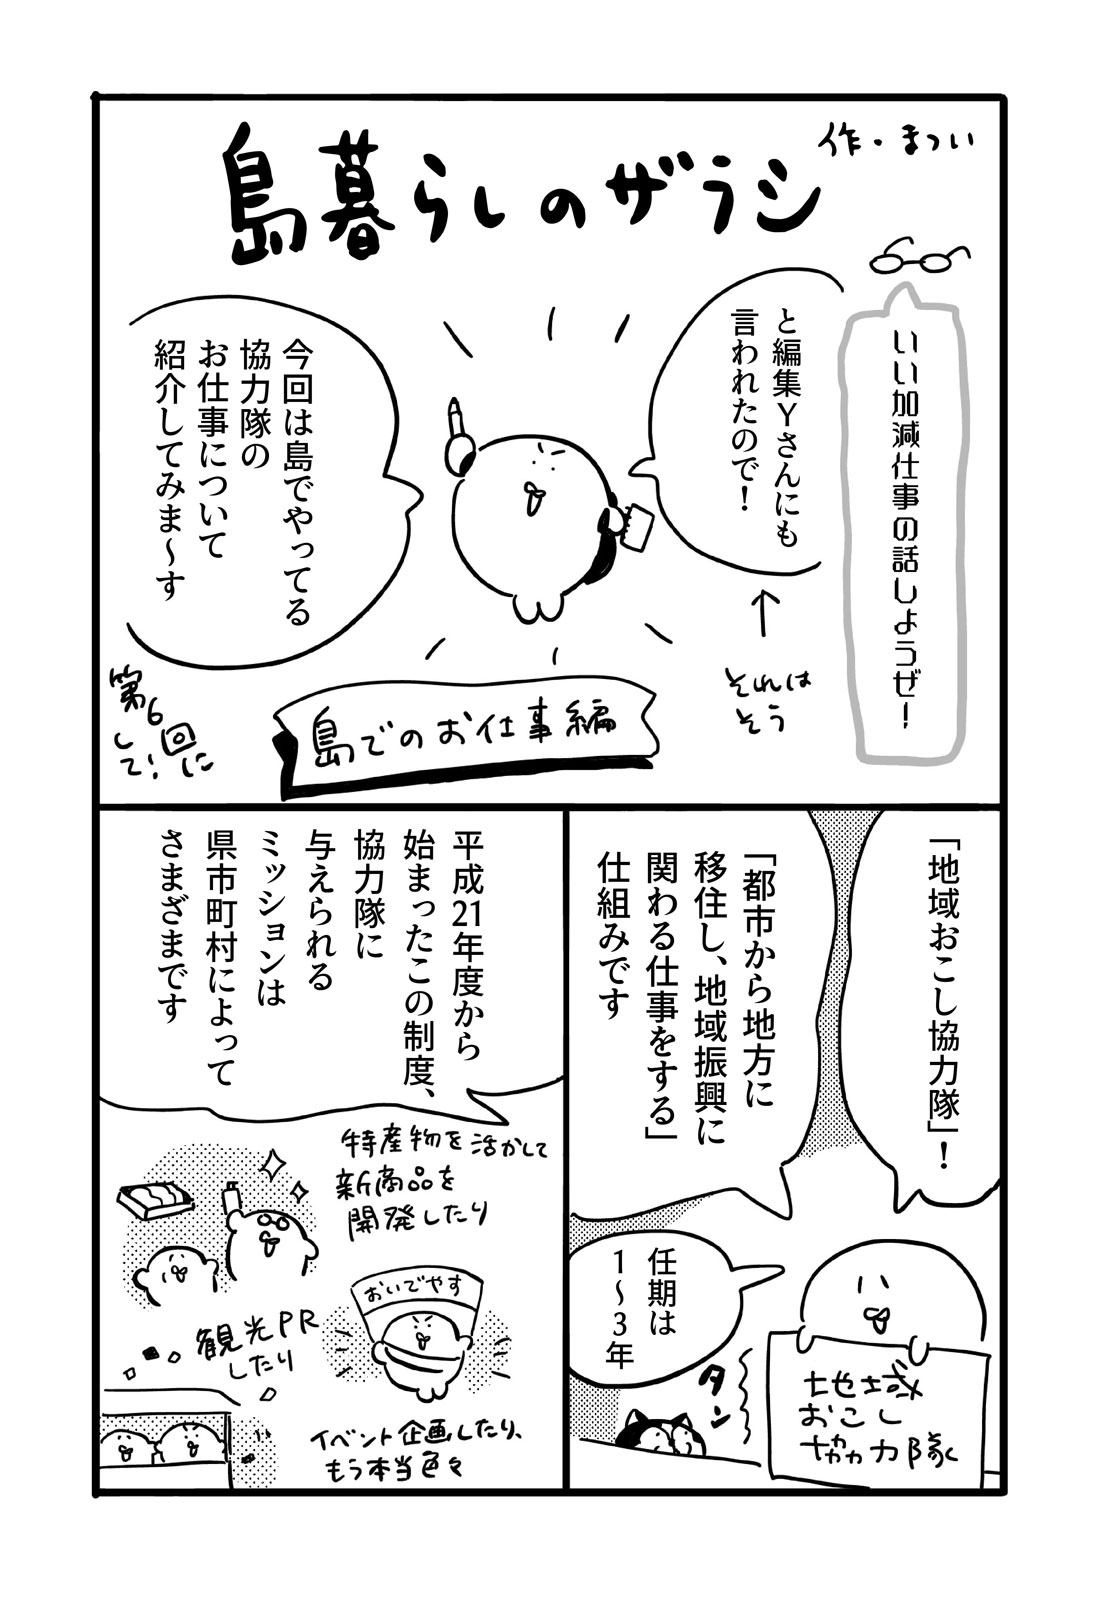 島暮らしのザラシ
作・まつい
いい加減仕事の話しようぜ！
と編集Ｙさんにも
言われたので！
それは
そう
今回は島でやってる
協力隊の
お仕事について
紹介してみま〜す
島でのお仕事編
第6回に
して！
「地域おこし協力隊」！
「都市から地方に
移住し、地域振興に
関わる仕事をする」
仕組みです
任期は
1〜3年
タン
地域
おこし
協力隊
平成21年度から
始まったこの制度、
協力隊に
与えられる
ミッションは
県市町村によって
さまざまです
特産物を活かして
新商品を
開発したり
おいでやす
観光PR
したり
イベント企画したり、
もう本当色々